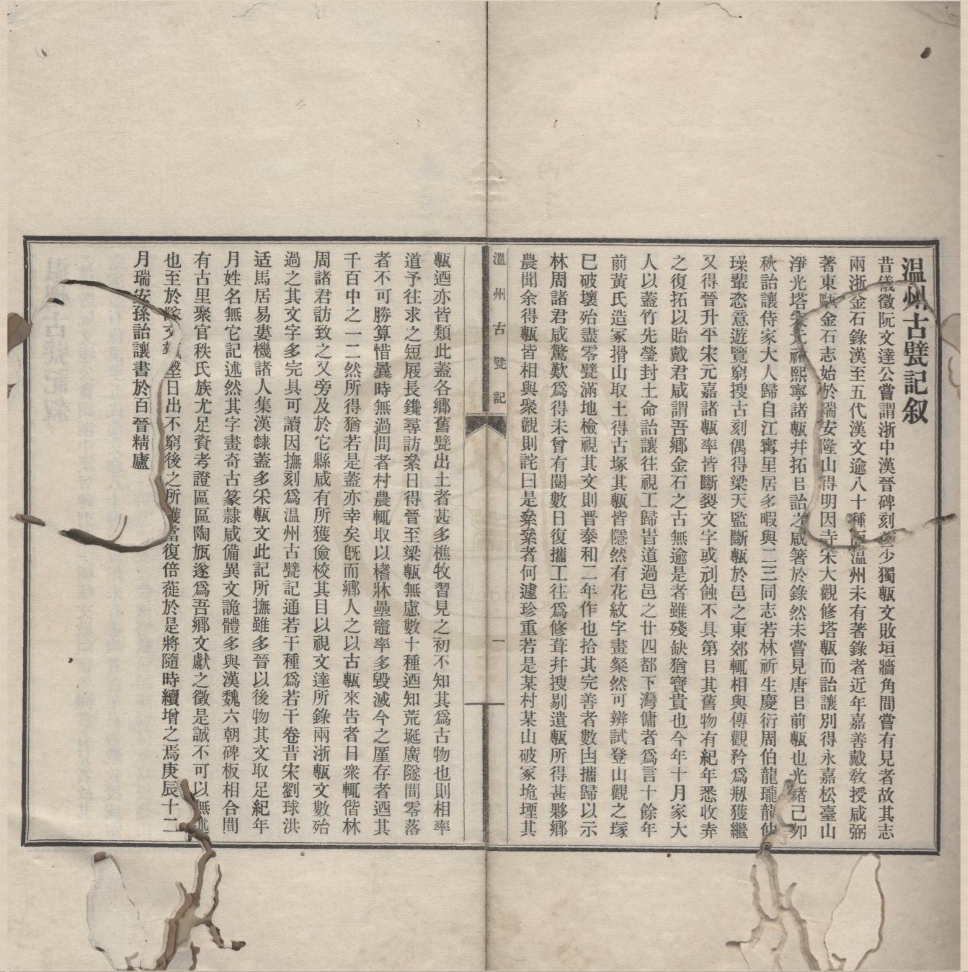 温州古甓記叙
昔儀徵阮文達公嘗謂浙中漢晉碑刻少獨甎文敗垣牆角間嘗有見者故其志
兩浙金石錄漢至五代漢文逾八十種溫州未有著錄者近年嘉善戴敎授咸弼
著東甌金石志始於瑞安隆山得明因寺宋大觀修塔甎而詒讓別得永嘉松臺山
淨光塔宋元祐熙寧諸甎幷拓㠯詒之咸著於錄然未嘗見唐㠯前甎也光緒己卯
秋詒讓侍家大人歸自江寗里居多暇與二三同志若林祈生慶衍周伯龍瓏龍仲
璪輩恣意遊覽窮搜古刻偶得梁天監斷甎於邑之東郊輒相與傳觀矜爲刱獲繼
又得晉升平宋元嘉諸甎率皆斷裂文字或刓蝕不具第㠯其舊物有紀年悉收弆
之復拓以貽戴君咸謂吾鄉金石之古無逾是者雖殘缺猶寶貴也今年十月家大
人以蓋竹先塋封土命詒讓往視工歸皆道過邑之廿四都下灣傭者爲言十餘年
前黃氏造冢搰山取土得古塚其甎皆隱然有花紋字畫粲然可辨試登山觀之塚
已破壞殆盡零甓滿地檢視其文則晉泰和二年作也拾其完善者數凷攜歸以示
林周諸君咸驚歎爲得未曾有閱數日復攜工往爲修葺幷搜剔遺甎所得甚夥鄉
農聞余得甎皆相與聚觀則詫曰是纍纍者何遽珍重若是某村某山破冢垝堙其
溫州古甓記
一
甎迺亦皆類此蓋各鄉舊甓出土者甚多樵牧習見之初不知其爲古物也則相率
道予往求之短屐長鑱尋訪纍日得晉至梁甎無慮數十種迺知荒埏廣隧間零落
者不可勝算惜曩時無過問者村農輒取以楮牀壘竈率多毀滅今之厪存者迺其
千百中之一二然所得猶若是蓋亦幸矣旣而鄉人之以古甎來告者日衆輒偕林
周諸君訪致之又旁及於它縣咸有所獲儉校其目以視文達所錄兩浙甎文數殆
過之其文字多完具可讀因撫刻爲温州古甓記通若干種爲若干卷昔宋劉球洪
适馬居易婁機諸人集漢隸蓋多采甎文此記所撫雖多晉以後物其文取足紀年
月姓名無它記述然其字畫奇古篆隸咸備異文詭體多與漢魏六朝碑板相合間
有古里聚官秩氏族尤足資考證區區陶旊遂爲吾鄉文獻之徵是誠不可以無述
也至於陊日出不窮後之所獲當復倍蓰於是將隨時續增之焉庚辰十二
月瑞安孫詒讓書於百晉精廬